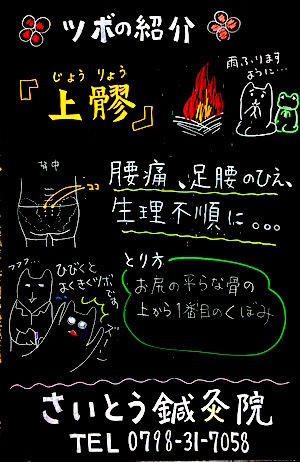 ツボの紹介
雨ふります
ように…
じょうりょう
『上髎』
背中
ココ
腰痛、足腰のひえ、
生理不順に。。。
フフフ…
ひびくと
よくきくツボ
です
とり方
お尻の平らな骨の
上から1番目のくぼみ
さいとう鍼灸院
TEL 0798-31-7058